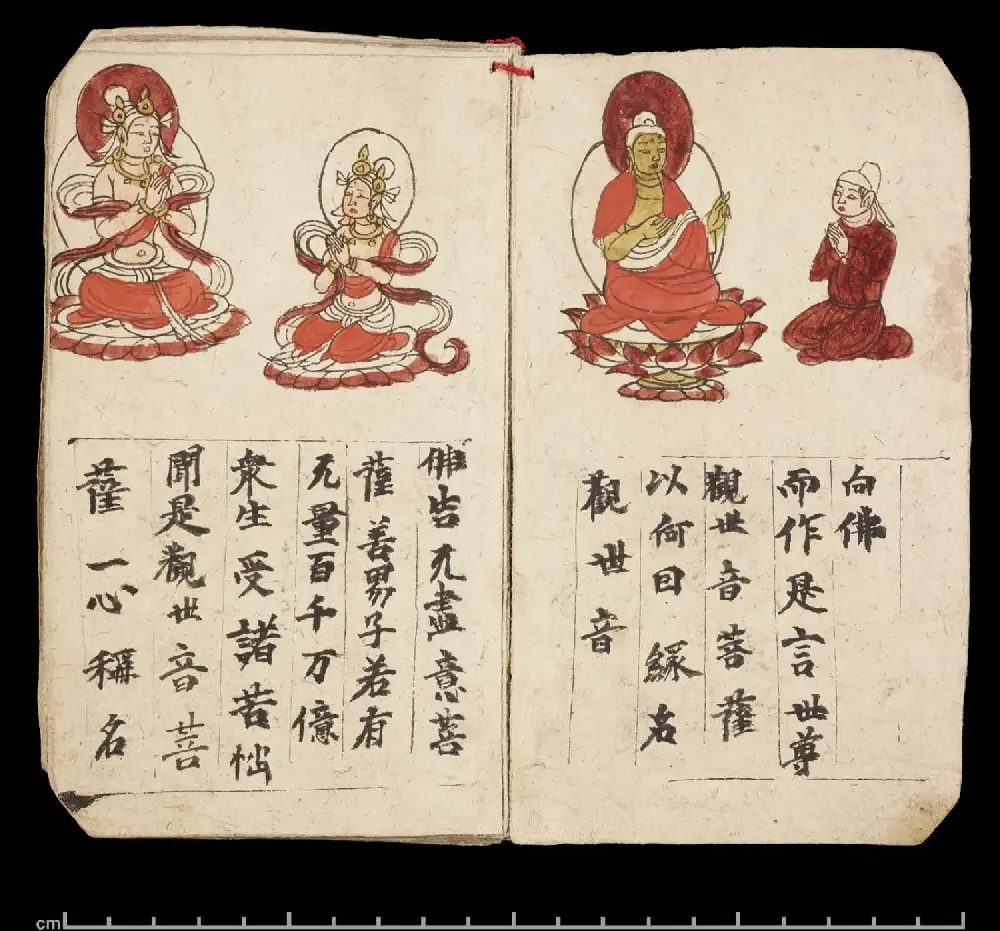 向佛
而作是言世尊
觀世音菩薩
以何因緣名
觀世音
佛告无盡意菩
薩善男子若有
无量百千万億
衆生受諸苦惱
聞是觀世音菩
薩一心稱名
cm